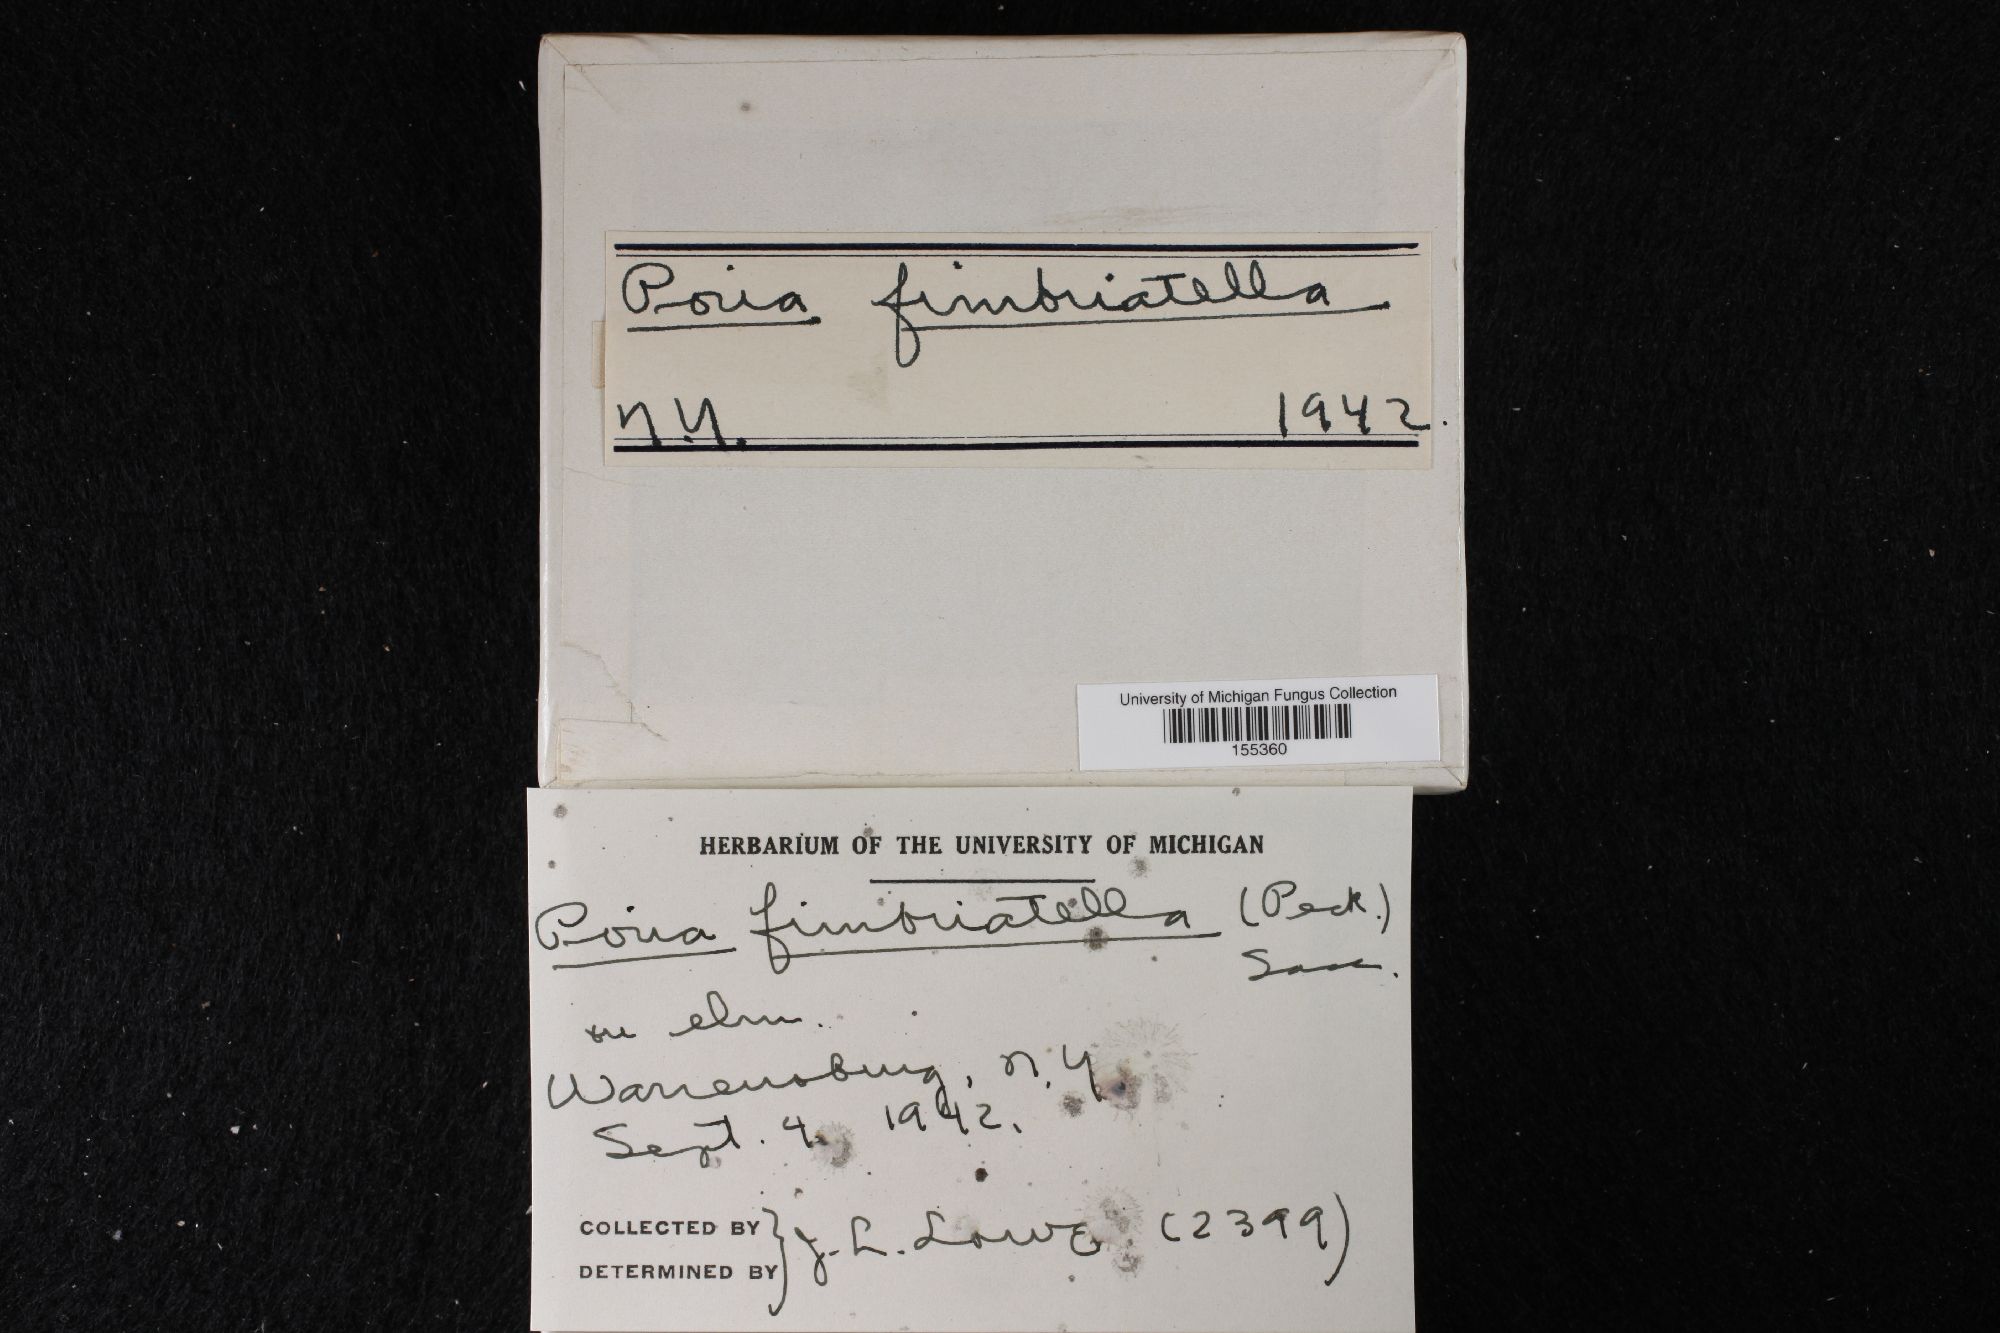 Poria fimbriatella
N.Y. 1942.
University of Michigan Fungus Collection
155360
HERBARIUM OF THE UNIVERSITY OF MICHIGAN
Poria fimbriatella (Peck.)
Sacc.
on elm.
Warrensburg, N.Y.
Sept. 4. 1942.
COLLECTED BY
DETERMINED BY } J. L. Lowe (2399)